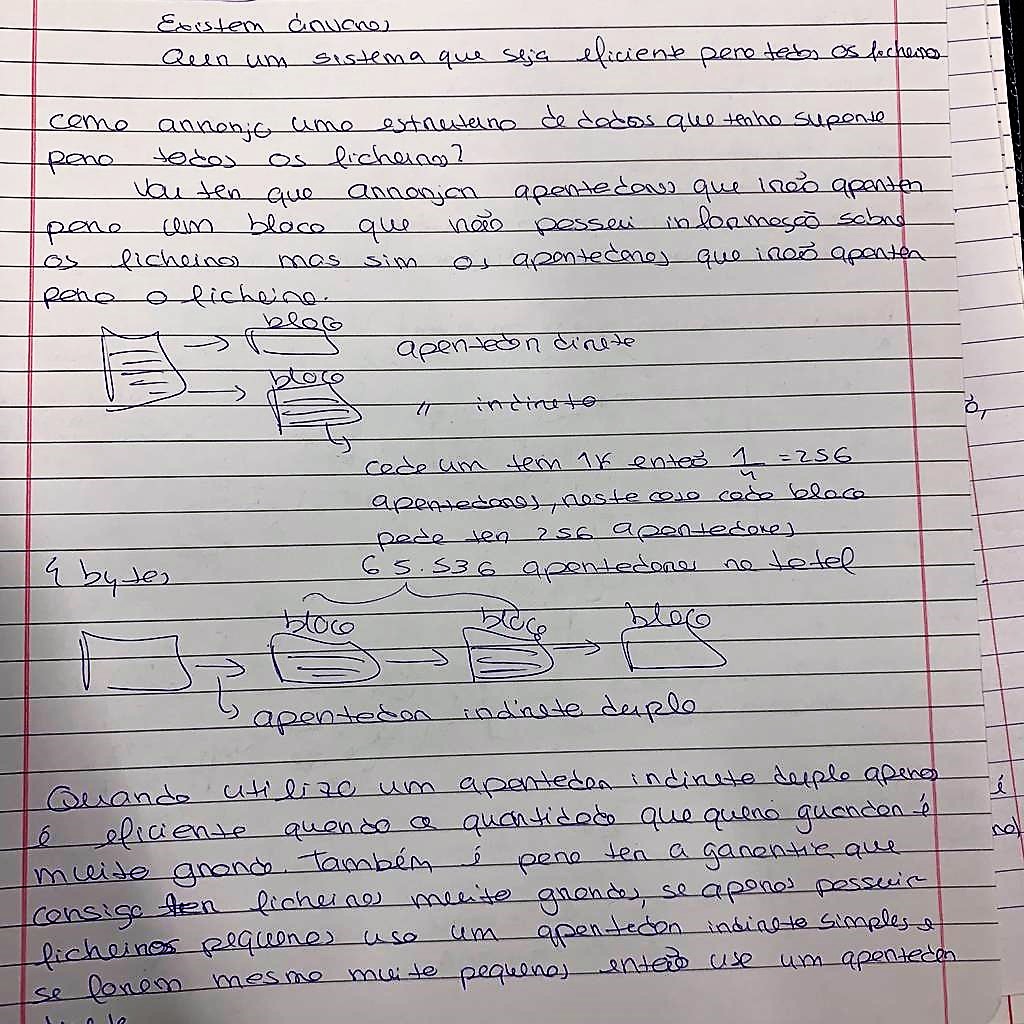 Existem árvores
Quer um sistema que seja eficiente para todos os ficheiros
como arranjo uma estrutura de dados que tenha suporte
para todos os ficheiros?
Vou ter que arranjar apontadores que irão apontar
para um bloco que não possui informação sobre
os ficheiros mas sim os apontadores que irão apontar
para o ficheiro.
bloco
apontador direto
bloco
" indireto
cada um tem 1K então 1/4 = 256
apontadores, neste caso cada bloco
pode ter 256 apontadores
4 bytes 65.536 apontadores no total
bloco bloco bloco
apontador indireto duplo
Quando utilizo um apontador indireto duplo apenas
é eficiente quando a quantidade que quero guardar é
muito grande. Também é para ter a garantia que
consigo ter ficheiros muito grandes, se apenas possuir
ficheiros pequenos uso um apontador indireto simples e
se forem mesmo muito pequenos então uso um apontador